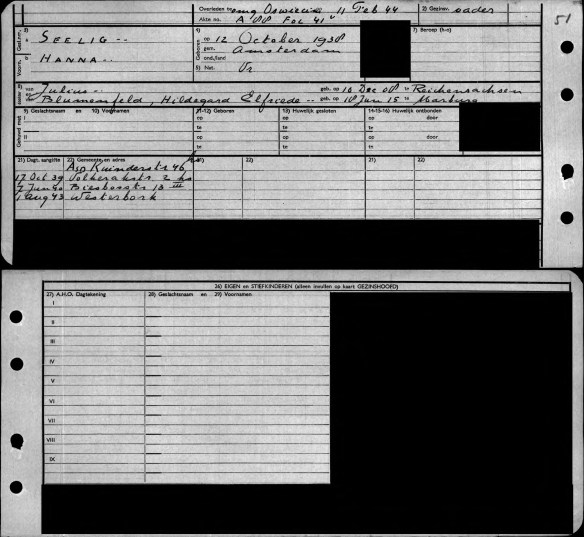 Overleden omg Oswiecim 11 Feb 44 2) Gezinsv. vader
Akte no. A 88 Fol 41v 51
3) SEELIG..
Gesl.nm.
4)
op 12 October 1938
gem. Amsterdam
7) Beroep (h-o)
Voorn. HANNA..
ond./land
5) Nat. Vr
van Julius.. geb. 10 Dec 08 te Reichensachsen
en Blumenfeld, Hildegard Elfriede.. geb. 18 Jun 15 te Marburg
9) Geslachtsnaam en 10) Voornamen 11-12) Geboren 13) Huwelijk gesloten 14-15-16) Huwelijk ontbonden
Gehuwd met
I op op op door
te te te
II op op op door
te te te
21) Dagt. aangifte 22) Gemeente en adres 21) 22) 21) 22)
Kuinderstr 46
17 Oct 39 Volkerakstr 2 hs
7 Jun 40 Biesboschstr 13 III
1 Aug 43 Westerbork
26) EIGEN en STIEFKINDEREN (alleen invullen op kaart GEZINSHOOFD)
27) A.H.O. Dagtekening 28) Geslachtsnaam en 29) Voornamen
I
II
III
IV
V
VI
VII
VIII
IX